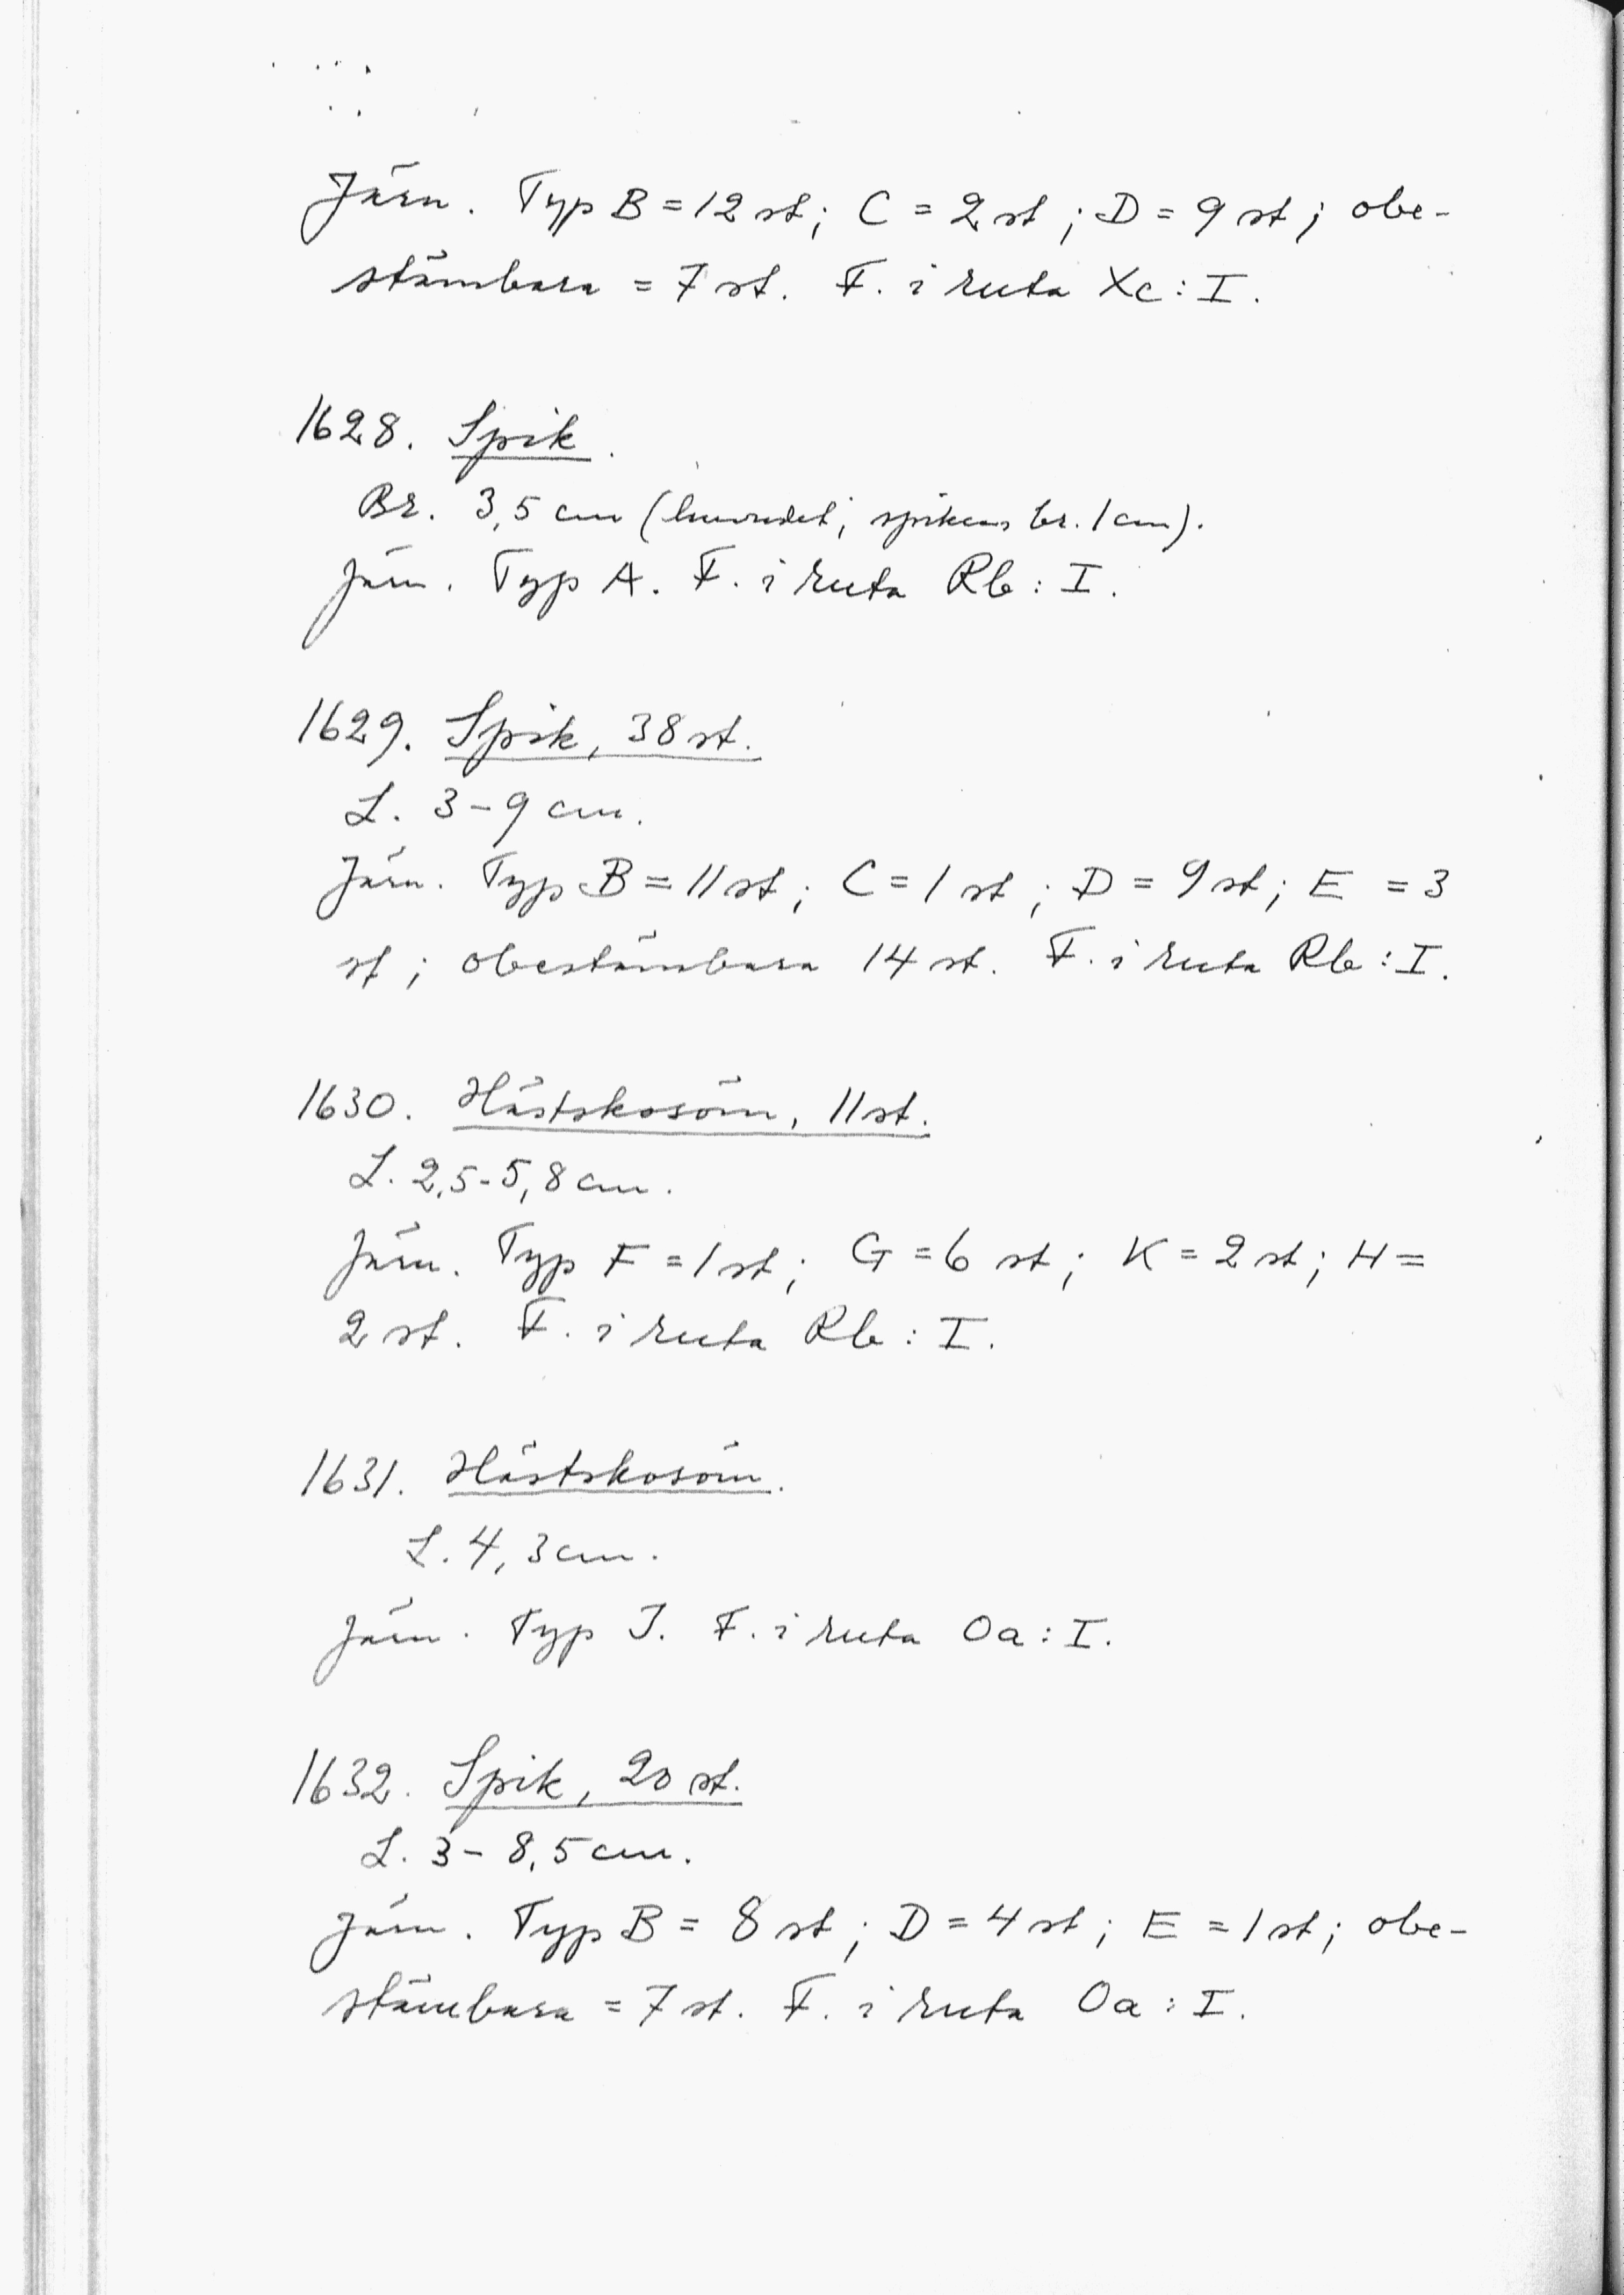 Järn. Typ B = 12 st; C = 2 st; D = 9 st; obe-
stämbara = 7 st. F. i ruta Xc: I.
1628. Spik.
Br. 3,5 cm (huvudet; spikens br. 1 cm).
Järn. Typ A. F. i ruta Rb: I.
1629. Spik, 38 st.
L. 3-9 cm.
Järn. Typ B = 11 st; C = 1 st; D = 9 st; E = 3
st; obestämbara 14 st. F. i ruta Rb: I.
1630. Hästskosöm, 11 st.
L. 2,5-5,8 cm.
Järn. Typ F = 1 st; G = 6 st; K = 2 st; H =
2 st. F. i ruta Rb: I.
1631. Hästskosöm.
L. 4,3 cm.
Järn. Typ J. F. i ruta Oa: I.
1632. Spik, 20 st.
L. 3-8,5 cm.
Järn. Typ B = 8 st; D = 4 st; E = 1 st; obe-
stämbara = 7 st. F. i ruta Oa: I.